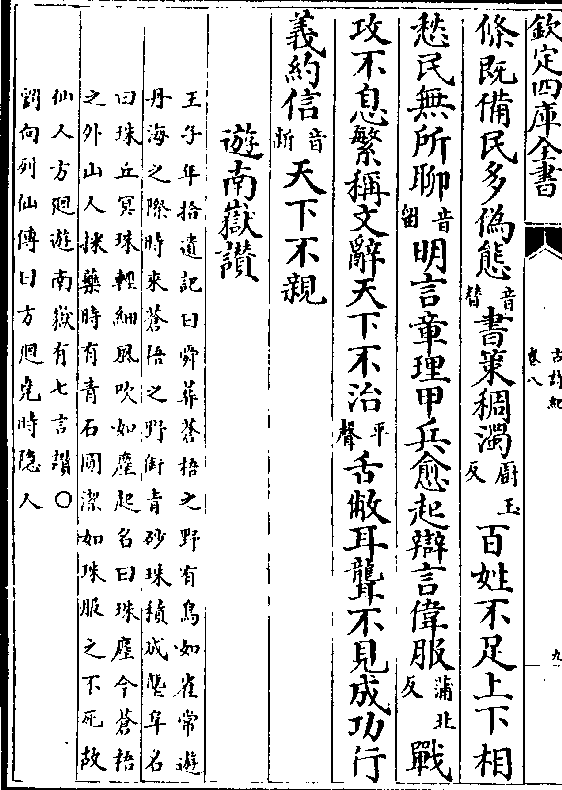 欽定四庫全書
古詩紀
卷八
九
條既備民多偽態音替書策稠濁厨玉反百姓不足上下相
愁民無所聊音留明言章理甲兵愈起辯言偉服蒲北反戰
攻不息繁稱文辭天下不治平聲舌敝耳聾不見成功行
義約信音新天下不親
遊南嶽讃
王子年拾遺記曰舜葬蒼梧之野有鳥如雀常遊
丹海之際時來蒼梧之野銜青砂珠積成壟阜名
曰珠丘冥珠輕細風吹如塵起名曰珠塵今蒼梧
之外山人採藥時有青石圓潔如珠服之不死故
仙人方廻遊南嶽有七言讃〇
劉向列仙傳曰方廻堯時隐人